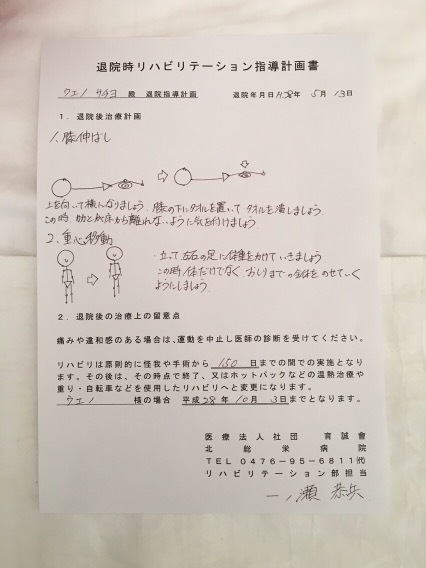 退院時リハビリテーション指導計画書
ウエノ サチヨ 殿 退院指導計画 退院年月日H.28年 5月 13日
1．退院後治療計画
1、膝伸ばし
上を向いて横になりましょう。膝の下にタオルを置いて タオルを潰しましょう。
この時 が床から離れないように気を付けましょう
2、重心移動
・立って左右の足に体重をかけていきましょう
この時 体だけでなく おしりまでの全体をのせていく
ようにしましょう
2．退院後の治療上の留意点
痛みや違和感のある場合は、運動を中止し医師の診断を受けてください。
リハビリは原則的に怪我や手術から 150 日までの間での実施となり
ます。その後は、その時点で終了、又はホットパックなどの温熱治療や
重り・自転車などを使用したリハビリへと変更になります。
ウエノ 様の場合 平成28年10月 3日までとなります。
医療法人社団 育誠會
北総栄病院
TEL 0476-95-6811㈹
リハビリテーション部担当
一ノ瀬 恭兵